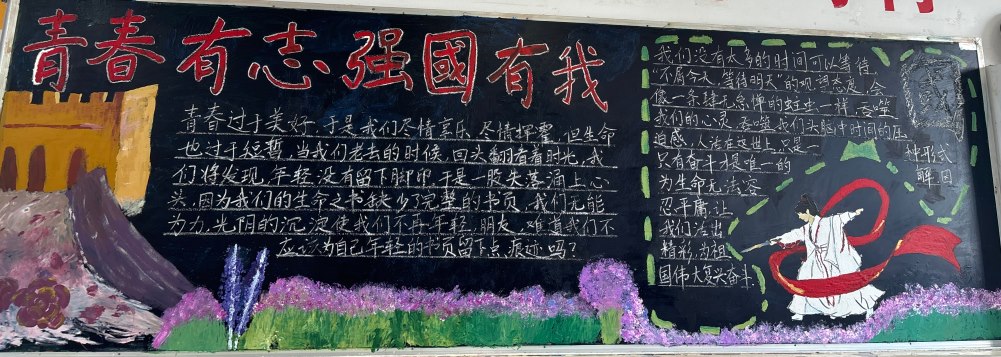 青春有志强國有我
青春过于美好,于是我们尽情享乐,尽情挥霍,但生命
也过于短暂,当我们老去的时候,回头翻看着时光,我
们将发现,年轻没有留下脚印于是一股失落涌上心
头,因为我们的生命之书缺少了完整的书页,我们无能
为力,光阴的沉淀使我们不再年轻,朋友,难道我们不
应该为自己年轻的书页留下点痕迹吗?
我们没有太多的时间可以等待,
"不屑今天,等待明天"的观望态度,会
像一条肆无忌惮的蛀虫一样,吞噬
我们的心灵,吞噬我们头脑中时间的压
迫感,人活在这世上,只是一
种形式
只有奋斗才是唯一的
解 因
为生命无法容
忍平庸,让
我们活出
精彩,为祖
国伟大复兴奋斗.